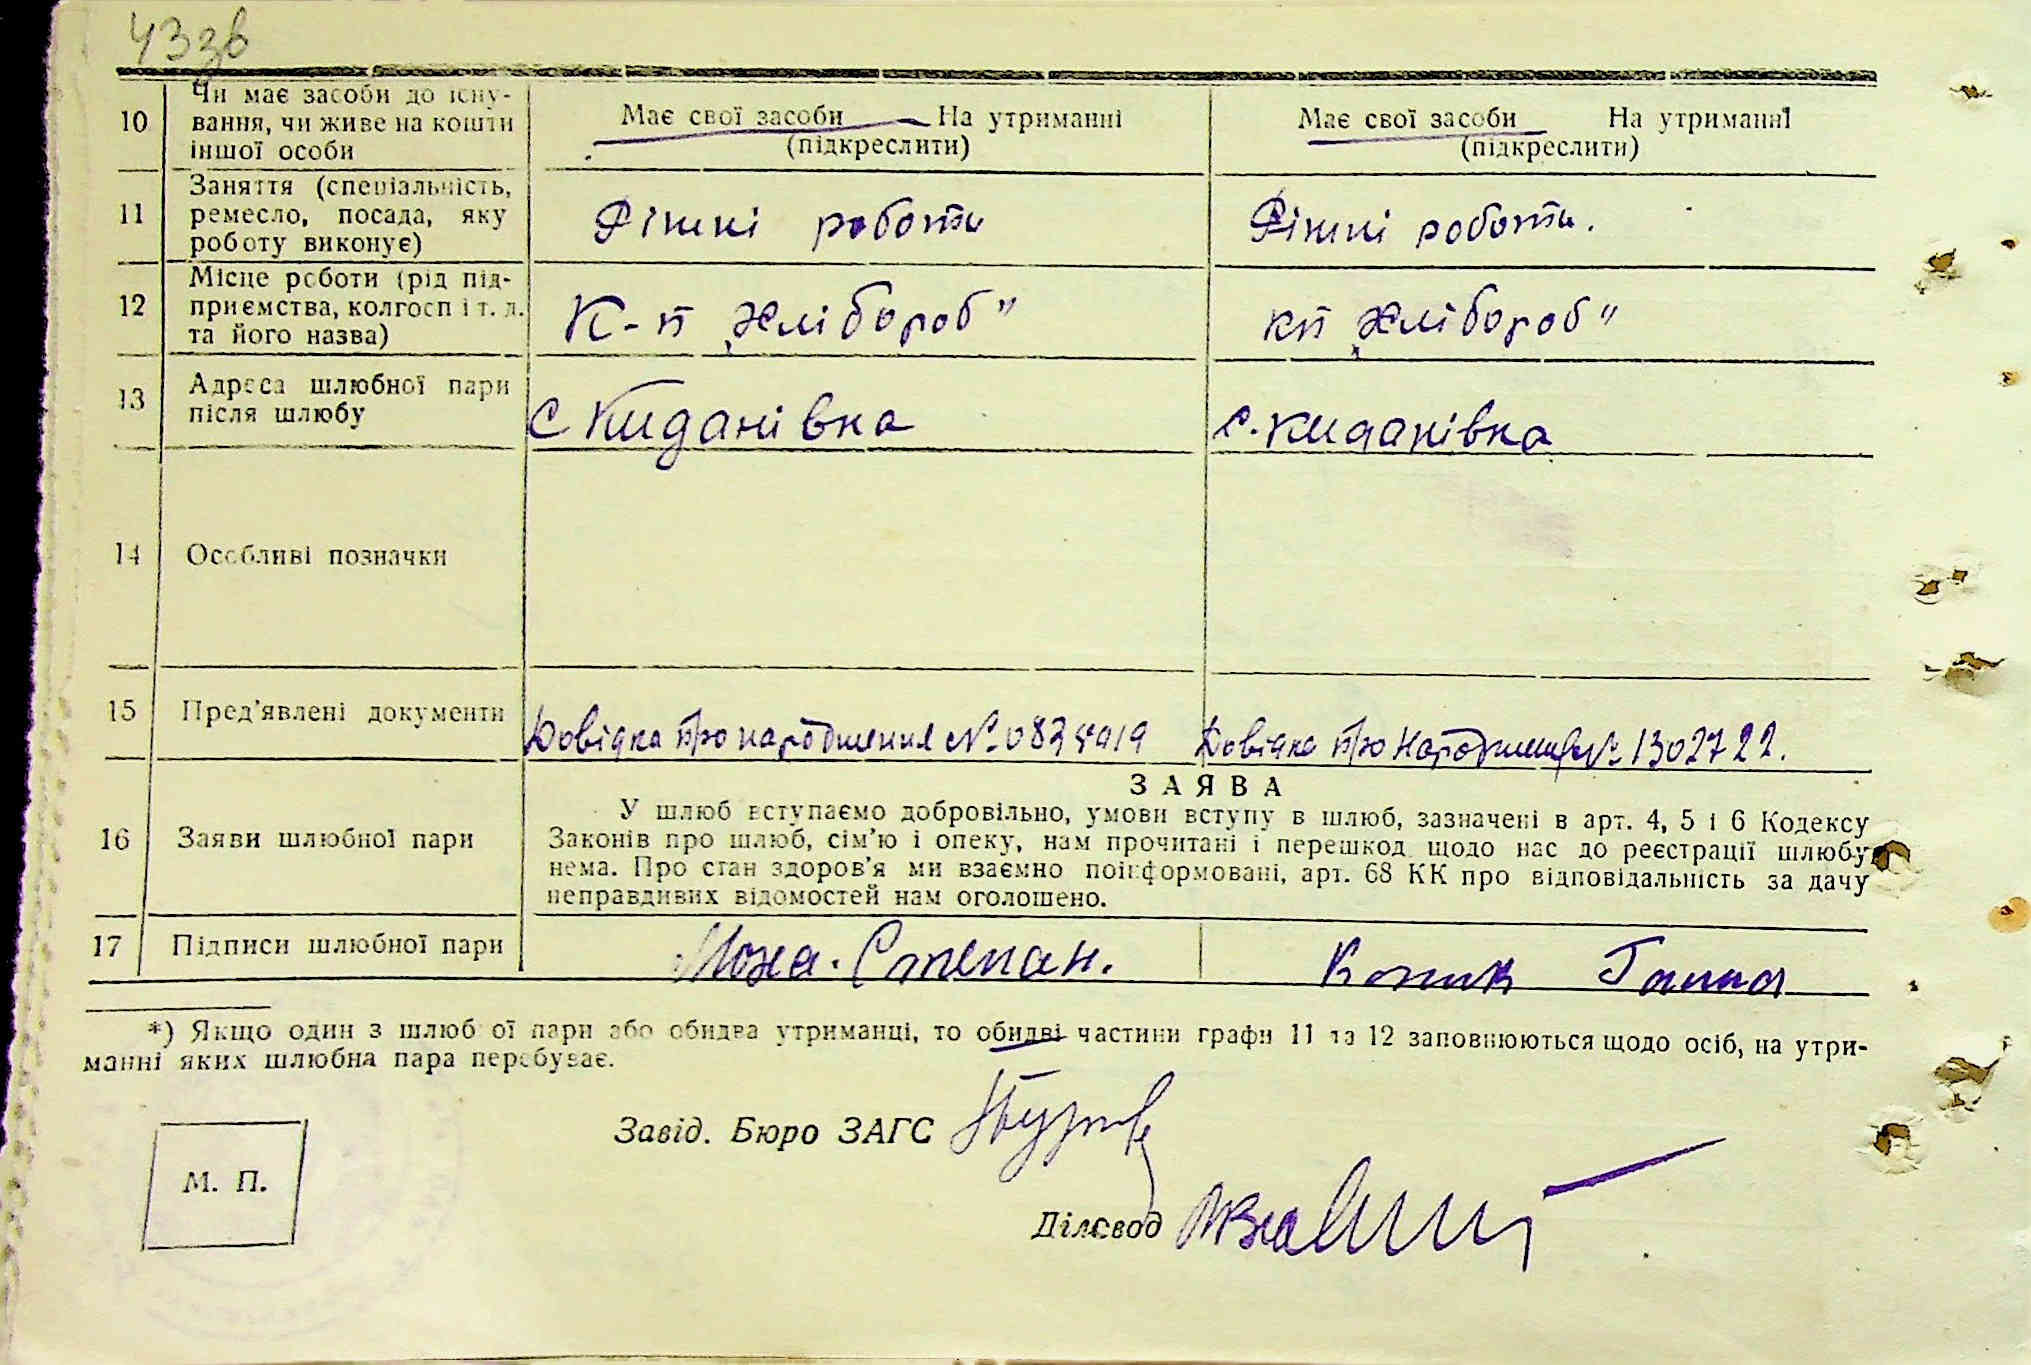 43зв
10 Чи має засоби до існу-
вання, чи живе на кошти
іншої особи
Має свої засоби На утриманні
(підкреслити)
Має свої засоби На утриманні
(підкреслити)
11 Заняття (спеціальність,
ремесло, посада, яку
роботу виконує)
Різниі роботи
Різниі роботи.
12 Місце роботи (рід під-
приємства, колгосп і т. д.
та його назва)
К-п „Хлібороб"
кп „Хлібороб"
13 Адреса шлюбної пари
після шлюбу
С Киданівка
с. Киданівка
14 Особливі позначки
15 Пред'явлені документи
Довідка про народження №
Довідка про народження № 1302722.
16 Заяви шлюбної пари
ЗАЯВА
У шлюб вступаємо добровільно, умови вступу в шлюб, зазначені в арт. 4, 5 і 6 Кодексу
Законів про шлюб, сім'ю і опеку, нам прочитані і перешкод щодо нас до реєстрації шлюбу
нема. Про стан здоров'я ми взаємно поінформовані, арт. 68 КК про відповідальність за дачу
неправдивих відомостей нам оголошено.
17 Підписи шлюбної пари
Степан.
Ганна
*) Якщо один з шлюбної пари або обидва утриманці, то обидві частини графи 11 та 12 заповнюються щодо осіб, на утри-
манні яких шлюбна пара перебуває.
Завід. Бюро ЗАГС
М. П.
Діловод